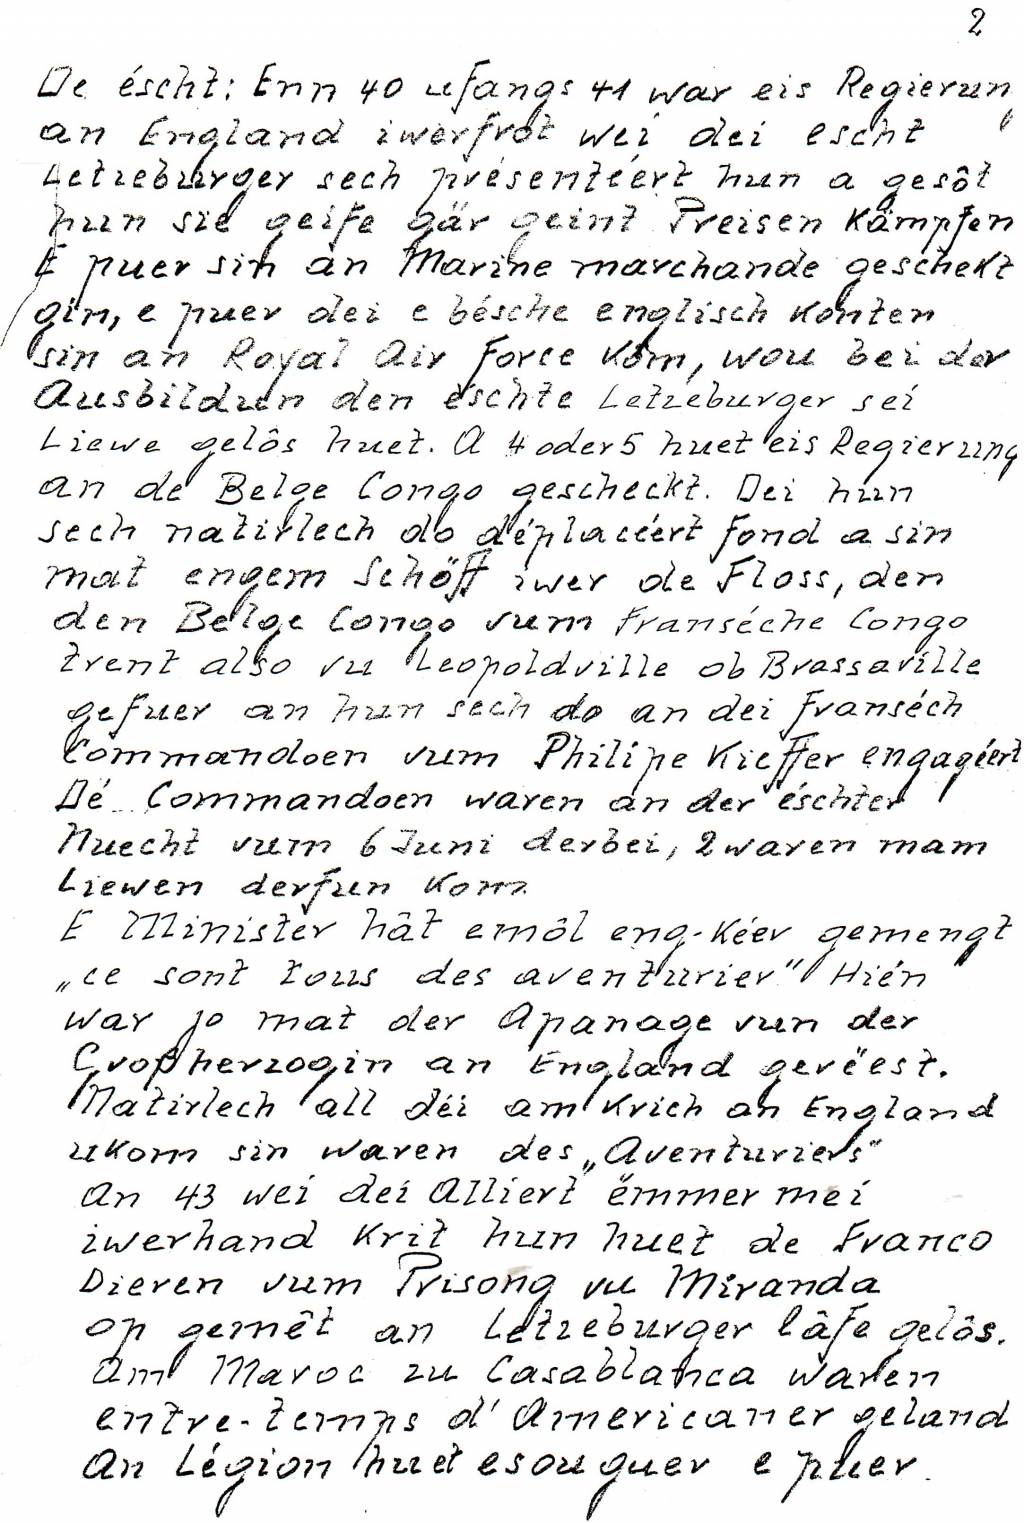 2
De éscht: Enn 40 ufangs 41 war eis Regierung
an England iwerfrôt wei dei escht
Letzeburger sech présentéert hun a gesôt
hun sie geife gär geint Preisen kämpfen
E puer sin an Marine marchande geschekt
gin, e puer dei e bésche englisch konten
sin an Royal Air Force kom, wou bei der
Ausbildun den éschte Letzeburger sei
Liewe gelôs huet. A 4 oder 5 huet eis Regierung
an de Belge Congo gescheckt. Dei hun
sech natirlech do déplacéert fond a sin
mat engem Schöff iwer de Floss, den
den Belge Congo vum Franséche Congo
trent also vu Leopoldville ob Brassaville
gefuer an hun sech do an dei franséch
Commandoen vum Philipe Kieffer engagéert
Dé Commandoen waren an der éschter
Nuecht vum 6 Juni derbei, 2 waren mam
Liewen derfun kom
E Minister hât emôl eng-Kéer gemengt
„ce sont tous des aventurier" Hién
war jo mat der Apanage vun der
Großherzogin an England gerëest.
Natirlech all déi am Krich an England
ukom sin waren des „Aventuriers"
An 43 wei dei Alliert ëmmer mei
iwerhand krit hun huet de Franco
Dieren vum Prisong vu Miranda
op gemêt an Letzeburger lâfe gelôs.
Am Maroc zu Casablanca waren
entre-temps d'Americaner geland
An Légion huet esouguer e puer